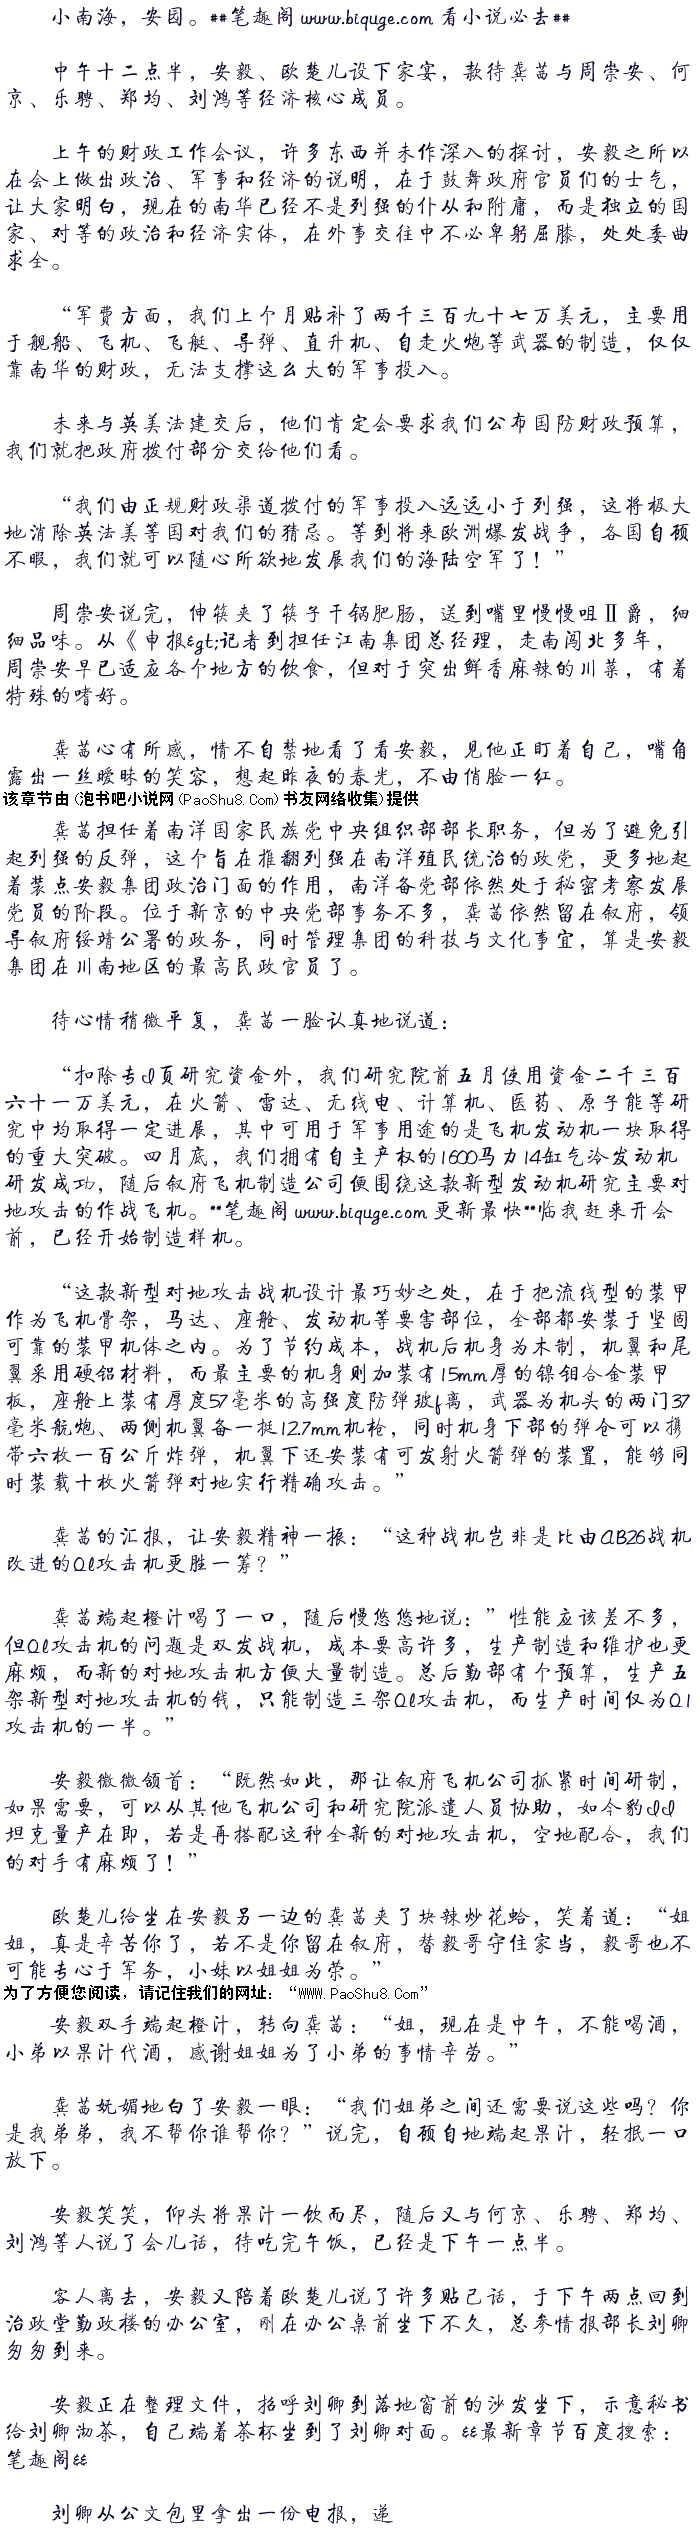 小南海，安园。##笔趣阁 www.biquge.com 看小说必去##
中午十二点半，安毅、欧楚儿设下家宴，款待龚茜与周崇安、何
京、乐聘、郑均、刘鸿等经济核心成员。
上午的财政工作会议，许多东西并未作深入的探讨，安毅之所以
在会上做出政治、军事和经济的说明，在于鼓舞政府官员们的士气，
让大家明白，现在的南华已经不是列强的仆从和附庸，而是独立的国
家、对等的政治和经济实体，在外事交往中不必卑躬屈膝，处处委曲
求全。
“军费方面，我们上个月贴补了两千三百九十七万美元，主要用
于舰船、飞机、飞艇、导弹、直升机、自走火炮等武器的制造，仅仅
靠南华的财政，无法支撑这么大的军事投入。
未来与英美法建交后，他们肯定会要求我们公布国防财政预算，
我们就把政府拨付部分交给他们看。
“我们由正规财政渠道拨付的军事投入远远小于列强，这将极大
地消除英法美等国对我们的猜忌。等到将来欧洲爆发战争，各国自顾
不暇，我们就可以随心所欲地发展我们的海陆空军了！”
周崇安说完，伸筷夹了筷子干锅肥肠，送到嘴里慢慢咀Ⅱ爵，细
细品味。从《申报&gt;记者到担任江南集团总经理，走南闯北多年，
周崇安早已适应各个地方的饮食，但对于突出鲜香麻辣的川菜，有着
特殊的嗜好。
龚茜心有所感，情不自禁地看了看安毅，见他正盯着自己，嘴角
露出一丝暧昧的笑容，想起昨夜的春光，不由俏脸一红。
该章节由(泡书吧小说网(PaoShu8.Com)书友网络收集)提供
龚茜担任着南洋国家民族党中央组织部部长职务，但为了避免引
起列强的反弹，这个旨在推翻列强在南洋殖民统治的政党，更多地起
着装点安毅集团政治门面的作用，南洋各党部依然处于秘密考察发展
党员的阶段。位于新京的中央党部事务不多，龚茜依然留在叙府，领
导叙府绥靖公署的政务，同时管理集团的科技与文化事宜，算是安毅
集团在川南地区的最高民政官员了。
待心情稍微平复，龚茜一脸认真地说道：
“扣除专I页研究资金外，我们研究院前五月使用资金二千三百
六十一万美元，在火箭、雷达、无线电、计算机、医药、原子能等研
究中均取得一定进展，其中可用于军事用途的是飞机发动机一块取得
的重大突破。四月底，我们拥有自主产权的1600马力14缸气冷发动机
研发成功，随后叙府飞机制造公司便围绕这款新型发动机研究主要对
地攻击的作战飞机。**笔趣阁 www.biquge.com 更新最快**临我赶来开会
前，已经开始制造样机。
“这款新型对地攻击战机设计最巧妙之处，在于把流线型的装甲
作为飞机骨架，马达、座舱、发动机等要害部位，全部都安装于坚固
可靠的装甲机体之内。为了节约成本，战机后机身为木制，机翼和尾
翼采用硬铝材料，而最主要的机身则加装有15mm厚的镍钼合金装甲
板，座舱上装有厚度57毫米的高强度防弹玻f离，武器为机头的两门37
毫米航炮、两侧机翼备一挺12.7mm机枪，同时机身下部的弹仓可以携
带六枚一百公斤炸弹，机翼下还安装有可发射火箭弹的装置，能够同
时装载十枚火箭弹对地实行精确攻击。”
龚茜的汇报，让安毅精神一振：“这种战机岂非是比由AB26战机
改进的Ql攻击机更胜一筹？”
龚茜端起橙汁喝了一口，随后慢悠悠地说：”性能应该差不多，
但Ql攻击机的问题是双发战机，成本要高许多，生产制造和维护也更
麻烦，而新的对地攻击机方便大量制造。总后勤部有个预算，生产五
架新型对地攻击机的钱，只能制造三架Ql攻击机，而生产时间仅为Q1
攻击机的一半。”
安毅微微颔首：“既然如此，那让叙府飞机公司抓紧时间研制，
如果需要，可以从其他飞机公司和研究院派遣人员协助，如今豹II
坦克量产在即，若是再搭配这种全新的对地攻击机，空地配合，我们
的对手有麻烦了！”
欧楚儿给坐在安毅另一边的龚茜夹了块辣炒花蛤，笑着道：“姐
姐，真是辛苦你了，若不是你留在叙府，替毅哥守住家当，毅哥也不
可能专心于军务，小妹以姐姐为荣。”
为了方便您阅读，请记住我们的网址：“WWW.PaoShu8.Com”
安毅双手端起橙汁，转向龚茜：“姐，现在是中午，不能喝酒，
小弟以果汁代酒，感谢姐姐为了小弟的事情辛劳。”
龚茜妩媚地白了安毅一眼：“我们姐弟之间还需要说这些吗？你
是我弟弟，我不帮你谁帮你？”说完，自顾自地端起果汁，轻抿一口
放下。
安毅笑笑，仰头将果汁一饮而尽，随后又与何京、乐聘、郑均、
刘鸿等人说了会儿话，待吃完午饭，已经是下午一点半。
客人离去，安毅又陪着欧楚儿说了许多贴己话，于下午两点回到
治政堂勤政楼的办公室，刚在办公桌前坐下不久，总参情报部长刘卿
匆匆到来。
安毅正在整理文件，招呼刘卿到落地窗前的沙发坐下，示意秘书
给刘卿沏茶，自己端着茶杯坐到了刘卿对面。&&最新章节百度搜索：
笔趣阁&&
刘卿从公文包里拿出一份电报，递